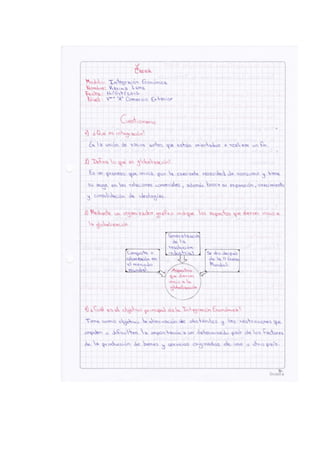 Deber
Módulo: Integración Económica
Nombre: Karina
Fecha:
Nivel: "A" Comercio Exterior
Cuestionario
1) ¿Qué es integración?
Es la unión de varios entes que están orientados a realizar un fin.
2) Defina lo que es globalización:
Es un proceso que inicia por la creciente necesidad de consumir y tiene
su auge en las relaciones comerciales, además busca su expansión, crecimiento
y consolidación de ideologías.
3) Mediante un organizador gráfico indique los aspectos que dieron inicio a
la globalización.
de la
revolución
industrial
Conquista o
en
el mercado
mundial.
Se dio después
de la II Guerra
Mundial.
Aspectos
que dieron
inicio a la
globalización
4) ¿Cuál es el objetivo principal de la Integración Económica?
Tiene como objetivo la eliminación de obstáculos y las restricciones que
impiden o dificultan la importación a un determinado país de los factores
de la producción de bienes y servicios originados de uno u otro país.